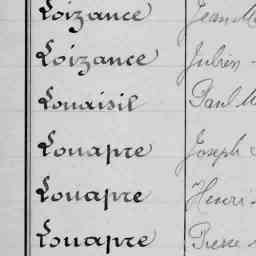 Loizance Jean M
Loizance Julien -
Louaisil Paul M
Louapre Joseph
Louapre Henri -
Louapre Pierre